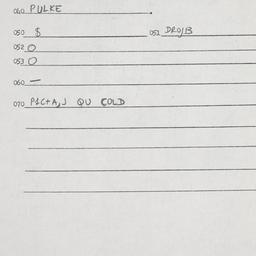 060 PULKE
050 $ 051 DROJB
052 O
053 O
060 —
070 P1C+A,J QU COLD